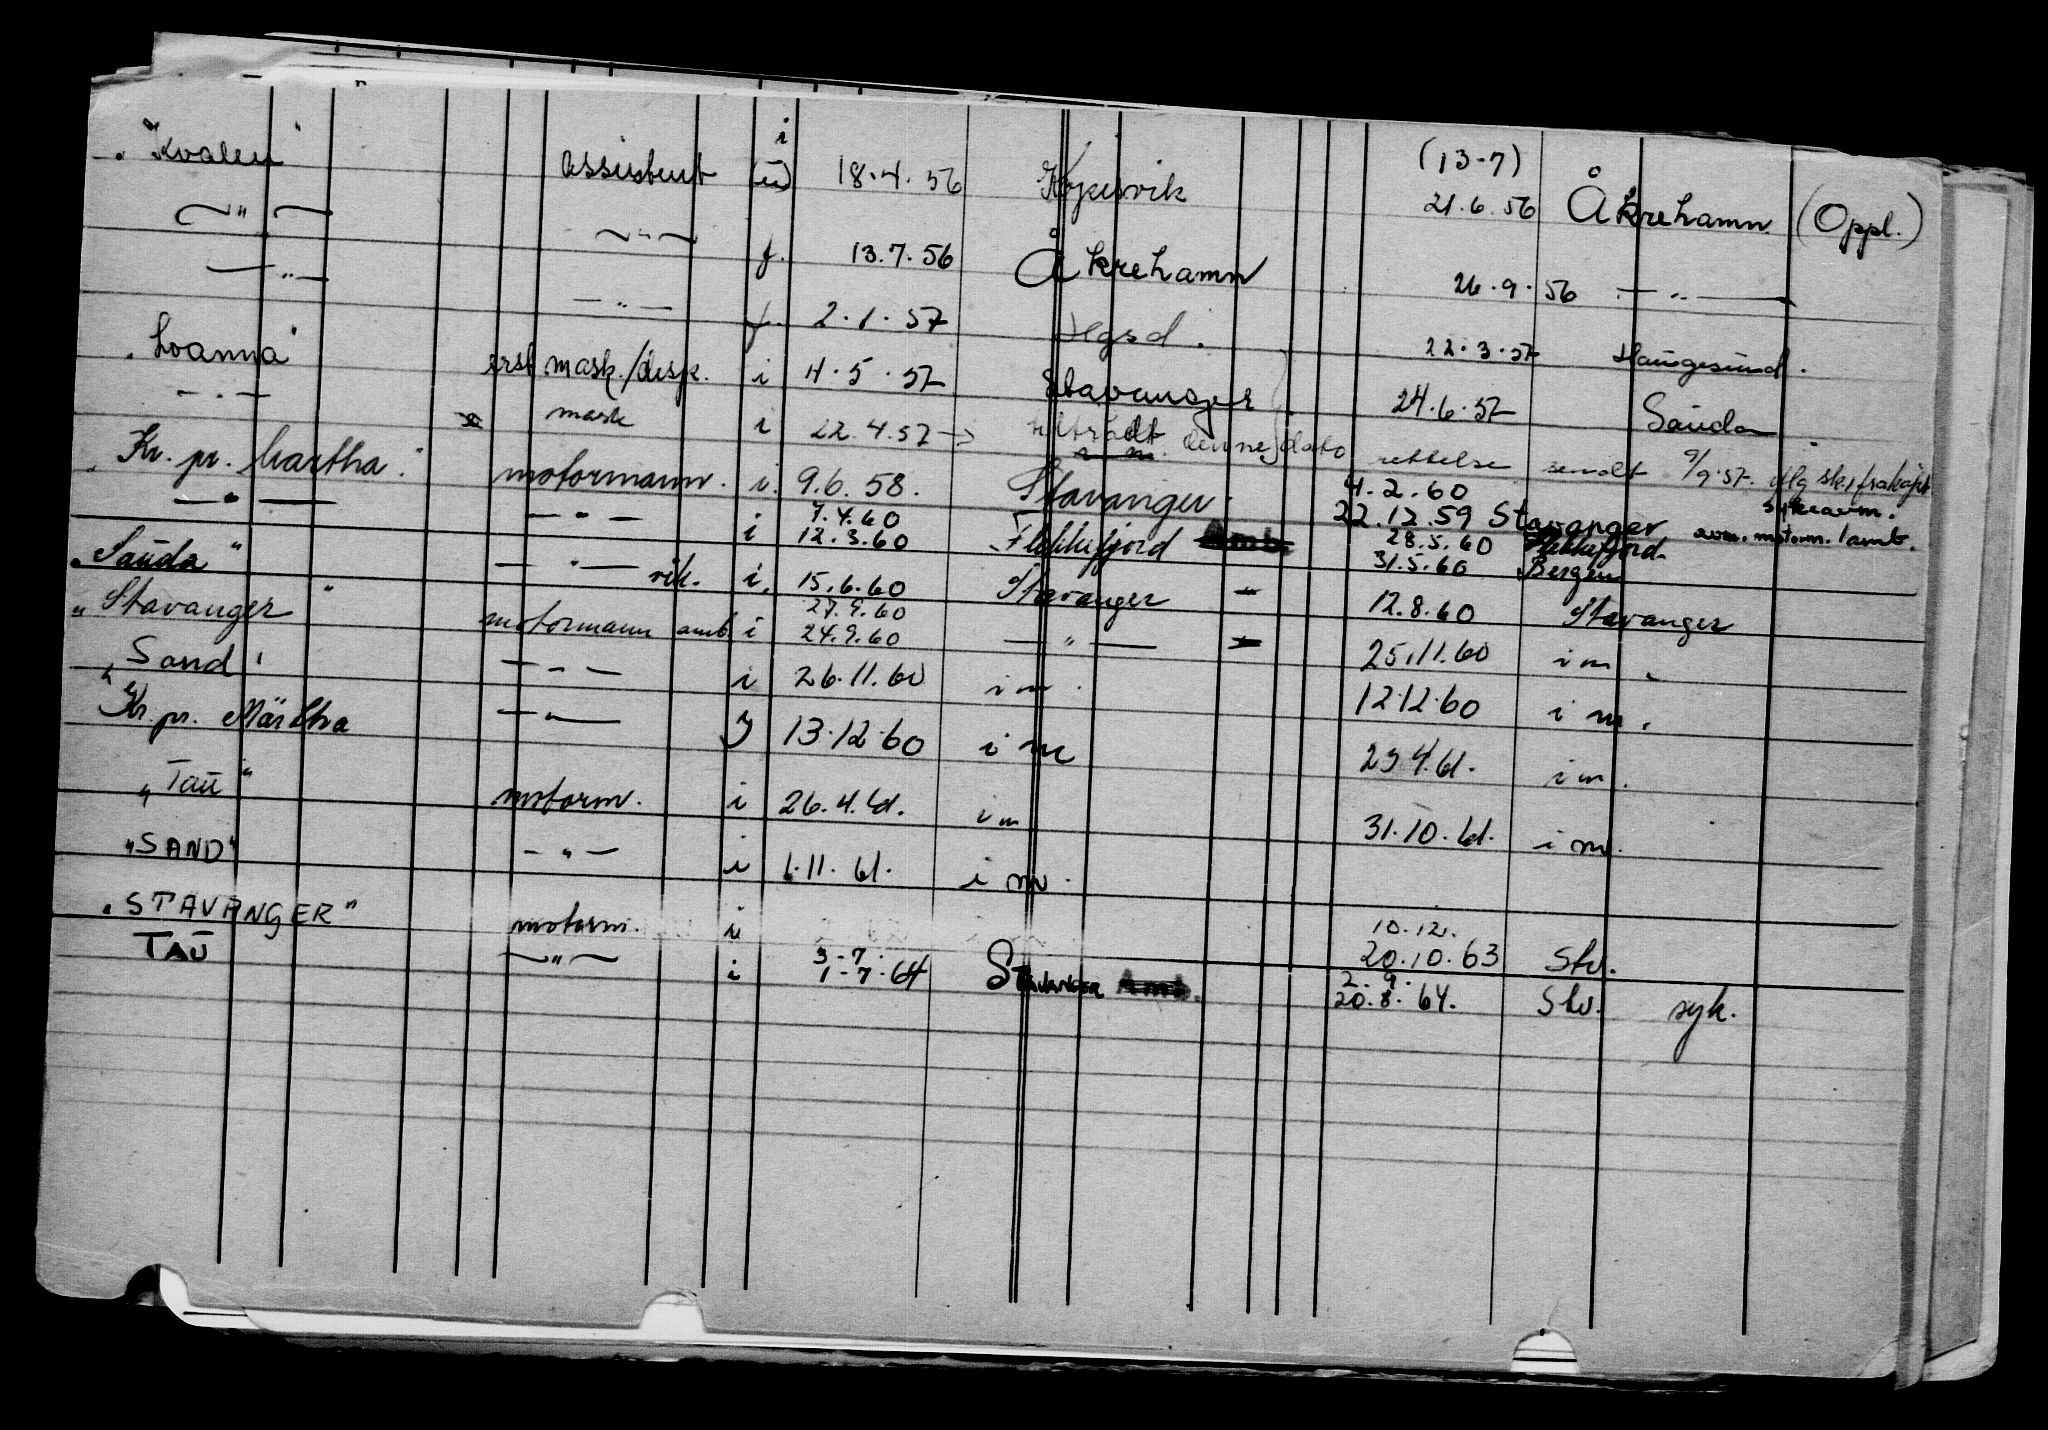 "Kvalen" assistent i (u) 18.4.56 Kopervik (13-7) 21.6.56 Åkrehamn (Oppl.)
—"— —"— f. 13.7.56 Åkrehamn 26.9.56 —"—
—"— —"— f. 2.1.57 Hgsd. 22.3.57 Haugesund.
"Loanna" mask./disp. i 4.5.57 Stavanger 24.6.57 Sauda
—"— mask i 22.4.57 → tiltrådt denne dato rettelse sendt 9/9-57.
"Kr. pr. Martha" motormann. i. 9.6.58. Stavanger. 4.2.60
22.12.59 Stavanger
—"— —"— i 7.4.60
12.3.60 Flekkefjord Amb. 28.5.60 Flekkefjord avm. motorm. / amb.
31.5.60 Bergen
"Sauda" —"— vik. i. 15.6.60 Stavanger 12.8.60 Stavanger
"Stavanger" motormann amb i 27.9.60
24.9.60 —"— 25.11.60 i m
"Sand" —"— i 26.11.60 i m. 12.12.60 i m.
Kr. pr. Märtha —"— i 13.12.60 i m 25.4.61. i m.
"Tau" motorm. i 26.4.61. i m 31.10.61. i m.
"SAND" —"— i 1.11.61. i m.
"STAVANGER" motorm. i 10.12.
20.10.63 Stv.
TAU —"— i 3-7.
1-7-64 STAVANGER Amb. 2.9.
20.8.64. Stv. syk.